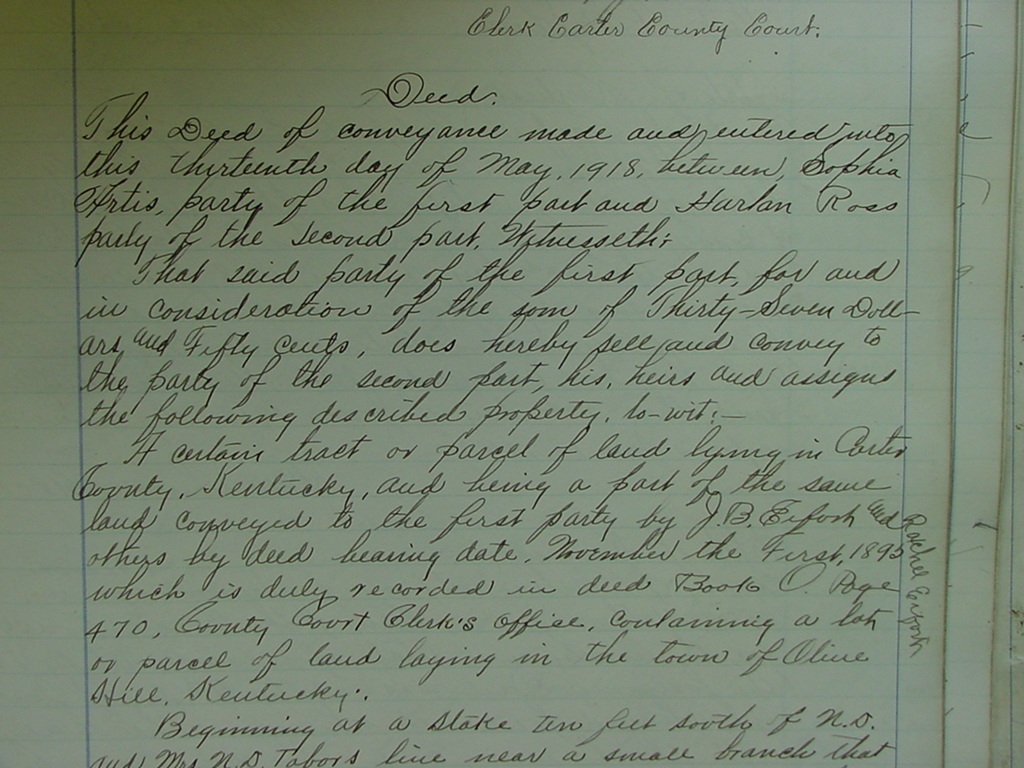 Clerk Carter County Court.
Deed.
This Deed of conveyance made and entered into
this thirteenth day of May, 1918, between, Sophia
Artis, party of the first part and Harlan Ross
party of the second part, Witnesseth;
That said party of the first part, for and
in consideration of the som of Thirty-Seven Doll-
ars and Fifty cents, does hereby sell and convey to
the party of the second part, his, heirs and assigns
the following described property, to-wit:-
A certain tract or parcel of land lying in Carter
County, Kentucky, and being a part of the same
land conveyed to the first party by J.B. Erfort and
others by deed bearing date, November the First, 1895
which is duly recorded in deed Book O. Page
470, County Court Clerk's office, containing a lot
or parcel of land laying in the town of Olive
Hill, Kentucky:.
Beginning at a stake ten feet south of N.D.
and Mrs N.D. Tabors line near a small branch that